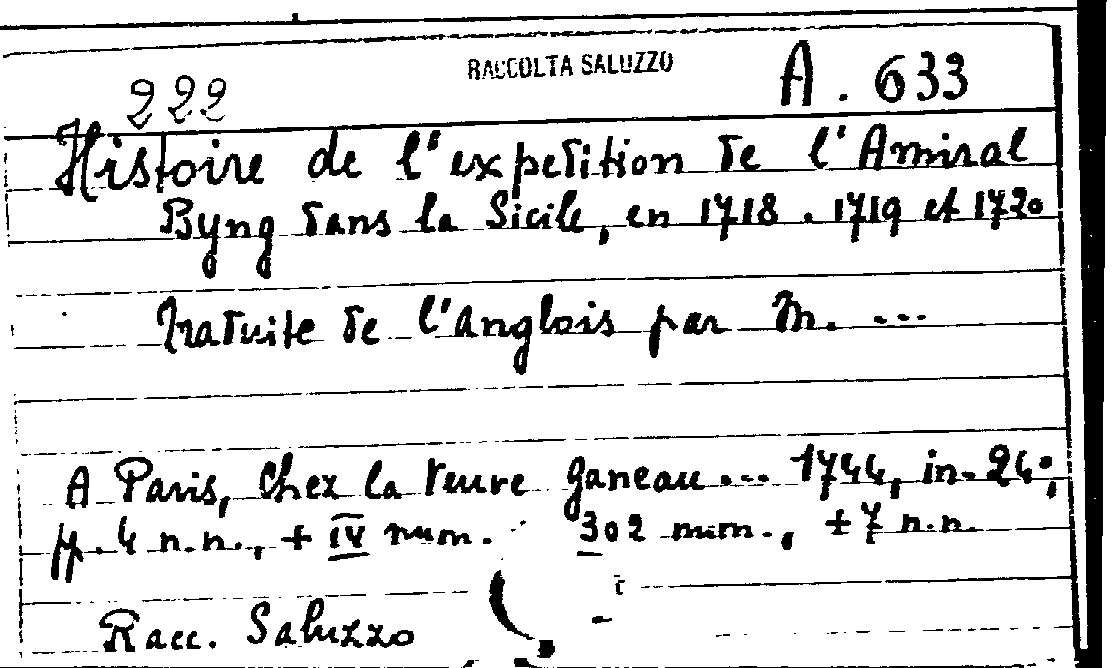 RACCOLTA SALUZZO
222 A. 633
Histoire de l'expedition de l'Amiral
Byng dans la Sicile, en 1718. 1719 et 1720
traduite de l'anglois par M. ...
A Paris, chez la veuve Ganeau... 1744, in-24°;
pp. 4 n.n., + IV num. 302 num., + 7 n.n.
Racc. Saluzzo